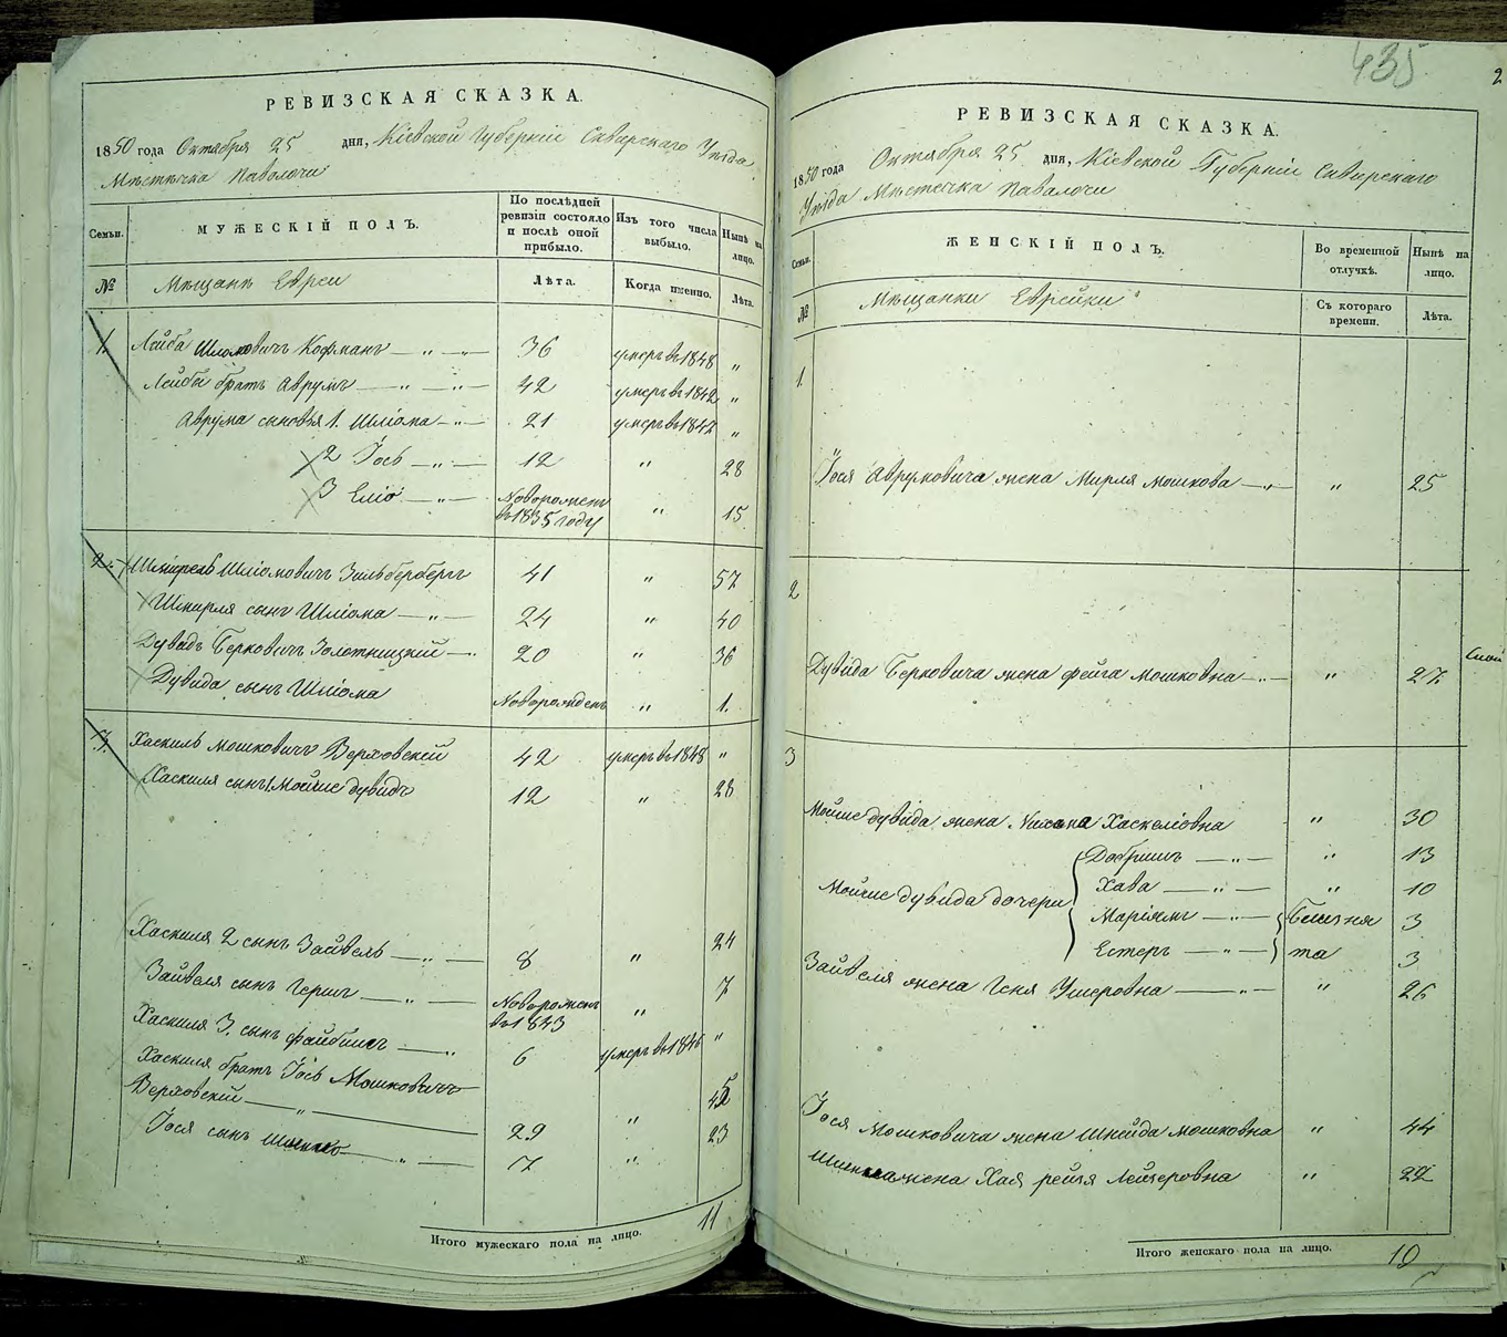 РЕВИЗСКАЯ СКАЗКА.
1850 года Октября 25 дня, Кіевской Губерніи Сквирскаго Уѣзда
Мѣстечка Паволочи
Семьи.
МУЖЕСКІЙ ПОЛЪ.
По послѣдней ревизіи состояло и послѣ оной прибыло.
Изъ того числа выбыло.
Нынѣ на лицо.
№
Мѣщане Евреи
Лѣта.
Когда именно.
Лѣта.
1. Лейба Шлиомовичъ Кофманъ — " — 36 умеръ въ 1848 "
Лейбы братъ Аврумъ — " — 42 умеръ въ 1842 "
Аврума сыновья 1. Шліома — " — 21 умеръ въ 1847 "
2 Іось — " — 12 " 28
3 Еліо — " — Новорожден въ 1835 году " 15
2. Шмирель Шліомовичъ Зильбербергъ 41 " 57
Шмирля сынъ Шліома — " — 24 " 40
Дувидъ Берковичъ Золотницкій — " 20 " 36
Дувида сынъ Шліома Новорожденъ " 1.
3. Хаскиль Мошковичъ Верховскій 42 умеръ въ 1848 "
Хаскиля сынъ 1. Мойше дувидъ 12 " 28
Хаскиля 2 сынъ Зайвель — " — 8 " 24
Зайвеля сынъ Герш — " — Новорожденъ въ 1843 " 7
Хаскиля 3. сынъ Файбиш — " 6 умеръ въ 1846 "
Хаскиля братъ Іось Мошковичъ
Верховскій — " — 29 " 45
Іося сынъ — " — 7 " 23
Итого мужескаго пола на лицо. 11
435
2
РЕВИЗСКАЯ СКАЗКА.
1850 года Октября 25 дня, Кіевской Губерніи Сквирскаго
Уѣзда Мѣстечка Паволочи
Семьи.
ЖЕНСКІЙ ПОЛЪ.
Во временной отлучкѣ.
Нынѣ на лицо.
№
Мѣщанки Еврейки
Съ котораго времени.
Лѣта.
1
Іося Аврумовича жена Мирля Мошкова — " — " 25
2
Дувида Берковича жена Фейга Мошковна — " — " 27
3
Мойше дувида жена Хаскеліовна " 30
Мойше дувида дочери
Добришъ — " — " 13
Хава — " — " 10
Маріямъ — " — Близня 3
Естеръ — " — та 3
Зайвеля жена Геня Ушеровна — " — " 26
Іося Мошковича жена Шнейда Мошковна " 44
жена Хая рейзя Лейзеровна " 22
Итого женскаго пола на лицо. 10